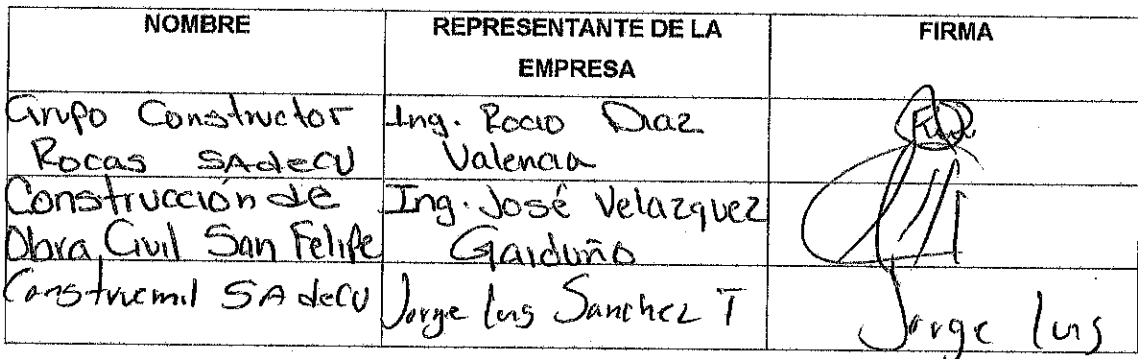 NOMBRE
REPRESENTANTE DE LA
EMPRESA
FIRMA
Grupo Constructor
Rocas SAdeCV
Ing. Rocio Diaz
Valencia
Construcción de
Obra Civil San Felipe
Ing. José Velazquez
Garduño
Construemil SAdeCV
Jorge Luis Sanchez T
Jorge Luis